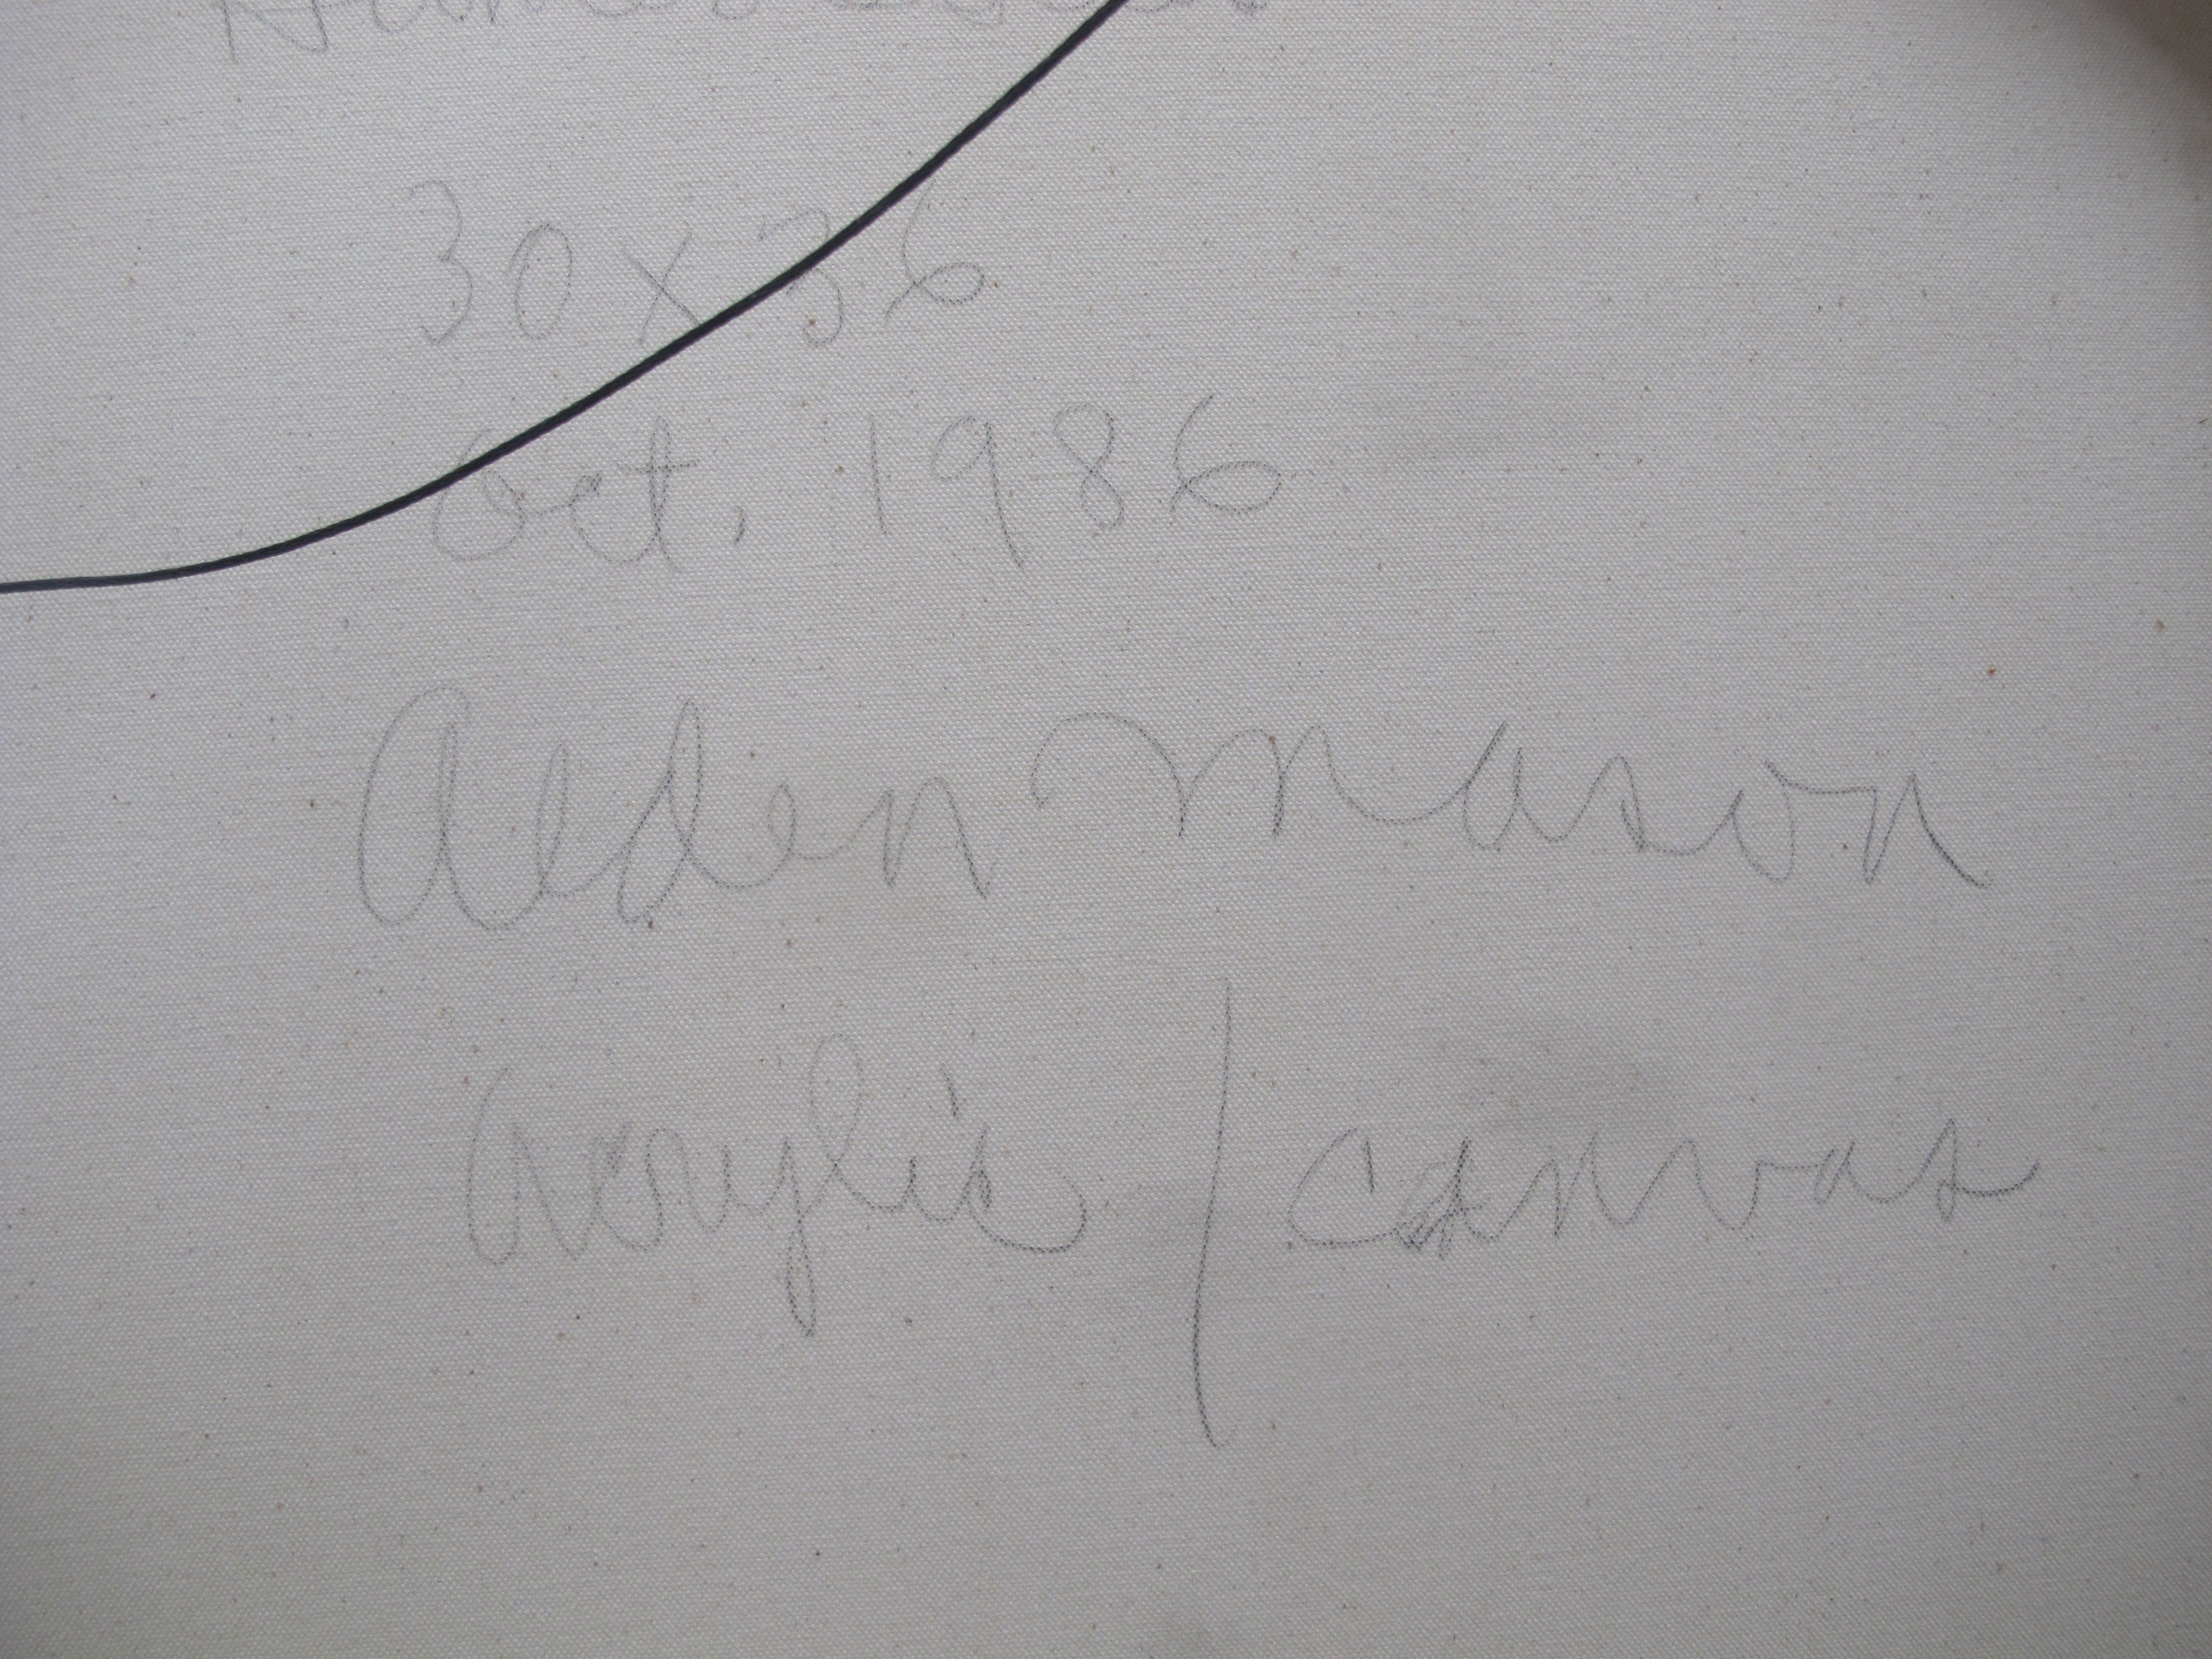 30 x 36
Oct. 1986
Alden Mason
Acrylic / canvas